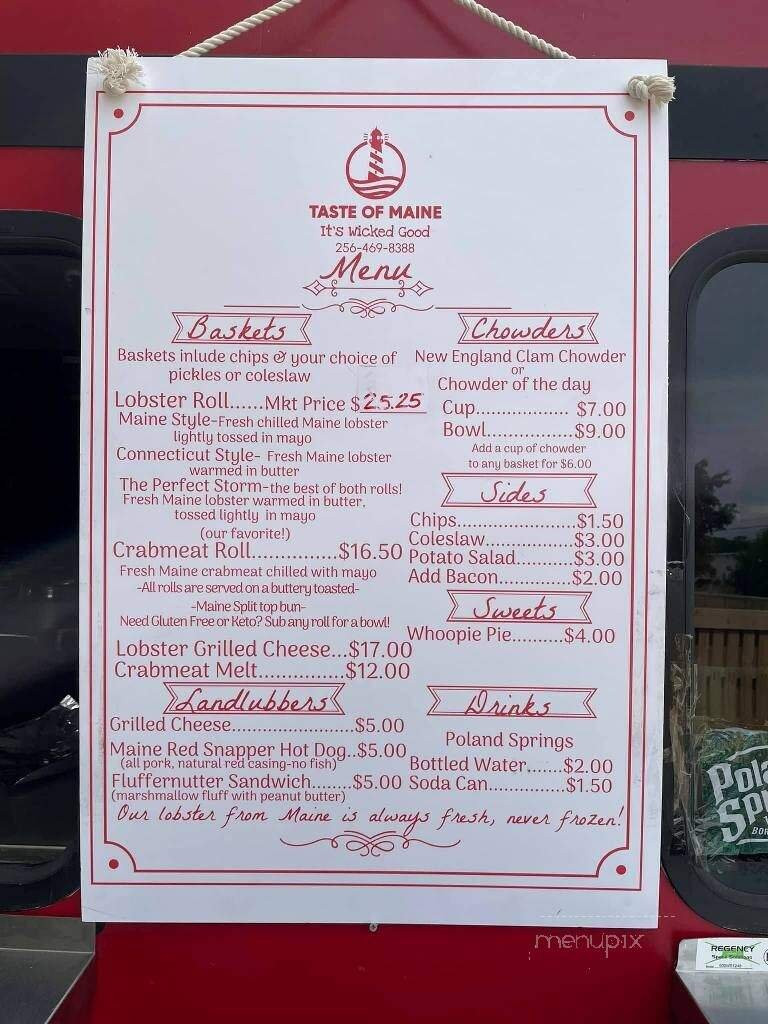 TASTE OF MAINE
It's Wicked Good
256-469-8388
Menu
Baskets
Baskets inlude chips & your choice of
pickles or coleslaw
Lobster Roll......Mkt Price $25.25
Maine Style-Fresh chilled Maine lobster
lightly tossed in mayo
Connecticut Style- Fresh Maine lobster
warmed in butter
The Perfect Storm-the best of both rolls!
Fresh Maine lobster warmed in butter,
tossed lightly in mayo
(our favorite!)
Crabmeat Roll...............$16.50
Fresh Maine crabmeat chilled with mayo
-All rolls are served on a buttery toasted-
-Maine Split top bun-
Need Gluten Free or Keto? Sub any roll for a bowl!
Lobster Grilled Cheese...$17.00
Crabmeat Melt...............$12.00
Landlubbers
Grilled Cheese.........................$5.00
Maine Red Snapper Hot Dog..$5.00
(all pork, natural red casing-no fish)
Fluffernutter Sandwich........$5.00
(marshmallow fluff with peanut butter)
Chowders
New England Clam Chowder
or
Chowder of the day
Cup................. $7.00
Bowl................$9.00
Add a cup of chowder
to any basket for $6.00
Sides
Chips.....................$1.50
Coleslaw................$3.00
Potato Salad..........$3.00
Add Bacon.............$2.00
Sweets
Whoopie Pie..........$4.00
Drinks
Poland Springs
Bottled Water.......$2.00
Soda Can...............$1.50
Our lobster from Maine is always fresh, never frozen!
menupix
REGENCY